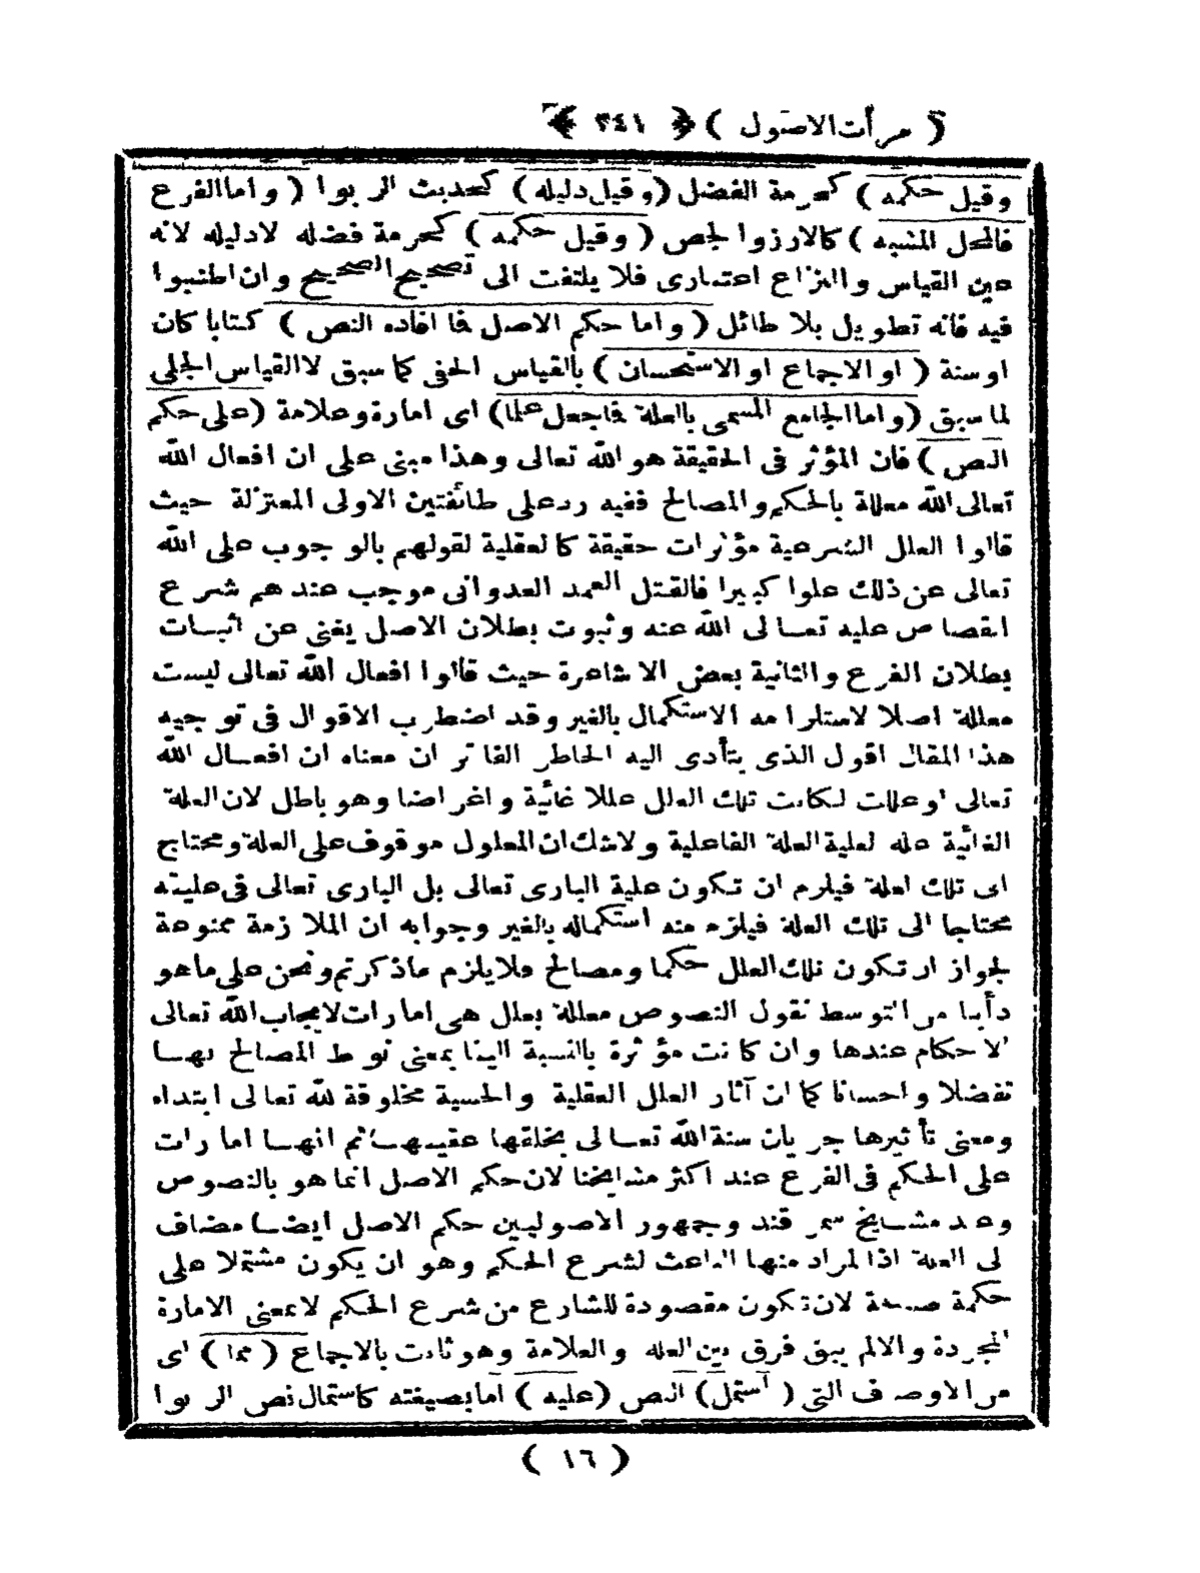 ( مرأت الاصول ) ﴿ ٢٤١ ﴾
وقيل حكمه ) كحرمة الفضل ( وقيل دليله ) كحديث الربوا ( واما الفرع
فالمحل المشبه ) كالارزوالجص ( وقيل حكمه ) كحرمة فضله لادليله لانه
عين القياس والنزاع اعتبارى فلا يلتفت الى تصحيح الصحيح وان اطنبوا
فيه فانه تطويل بلا طائل ( واما حكم الاصل فما افاده النص ) كتابا كان
اوسنة ( او الاجماع او الاستحسان ) بالقياس الخفى كما سبق لاالقياس الجلى
لما سبق ( واما الجامع المسمى بالعلة فماجعل علما ) اى امارة وعلامة ( على حكم
النص ) فان المؤثر فى الحقيقة هو الله تعالى وهذا مبنى على ان افعال الله
تعالى الله معللة بالحكم والمصالح ففيه رد على طائفتين الاولى المعتزلة حيث
قالوا العلل الشرعية مؤثرات حقيقة كالعقلية لقولهم بالوجوب على الله
تعالى عن ذلك علوا كبيرا فالقتل العمد العدوانى موجب عندهم شرع
القصاص عليه تعالى الله عنه وثبوت بطلان الاصل يغنى عن اثبات
بطلان الفرع والثانية بعض الاشاعرة حيث قالوا افعال الله تعالى ليست
معللة اصلا لاستلزامه الاستكمال بالغير وقد اضطرب الاقوال فى توجيه
هذا المقال اقول الذى يتأدى اليه الخاطر الفاتر ان معناه ان افعال الله
تعالى لوعللت لكانت تلك العلل عللا غائية واغراضا وهو باطل لان العلة
الغائية علة لعلية العلة الفاعلية ولاشك ان المعلول موقوف على العلة ومحتاج
اى تلك العلة فيلزم ان تكون علية البارى تعالى بل البارى تعالى فى عليته
محتاجا الى تلك العلة فيلزم منه استكماله بالغير وجوابه ان الملازمة ممنوعة
لجواز ان تكون تلك العلل حكما ومصالح فلايلزم ماذكرتم ونحن على ماهو
دأبنا من التوسط نقول النصوص معللة بعلل هى امارات لايجاب الله تعالى
الاحكام عندها وان كانت مؤثرة بالنسبة الينا بمعنى نوط المصالح بها
تفضلا واحسانا كما ان آثار العلل العقلية والحسية مخلوقة لله تعالى ابتداء
ومعنى تأثيرها جريان سنة الله تعالى بخلقها عقيبها ثم انها امارات
على الحكم فى الفرع عند اكثر مشايخنا لان حكم الاصل انما هو بالنصوص
وعند مشايخ سمرقند وجمهور الاصوليين حكم الاصل ايضا مضاف
لى العلة اذالمراد منها الباعث لشرع الحكم وهو ان يكون مشتملا على
حكمة صالحة لان تكون مقصودة للشارع من شرع الحكم لابمعنى الامارة
المجردة والالم يبق فرق بين العله والعلامة وهو ثابت بالاجماع ( مما ) اى
من الاوصاف التى ( اشتمل ) النص ( عليه ) امابصيغته كاشتمال نص الربوا
( ١٦ )